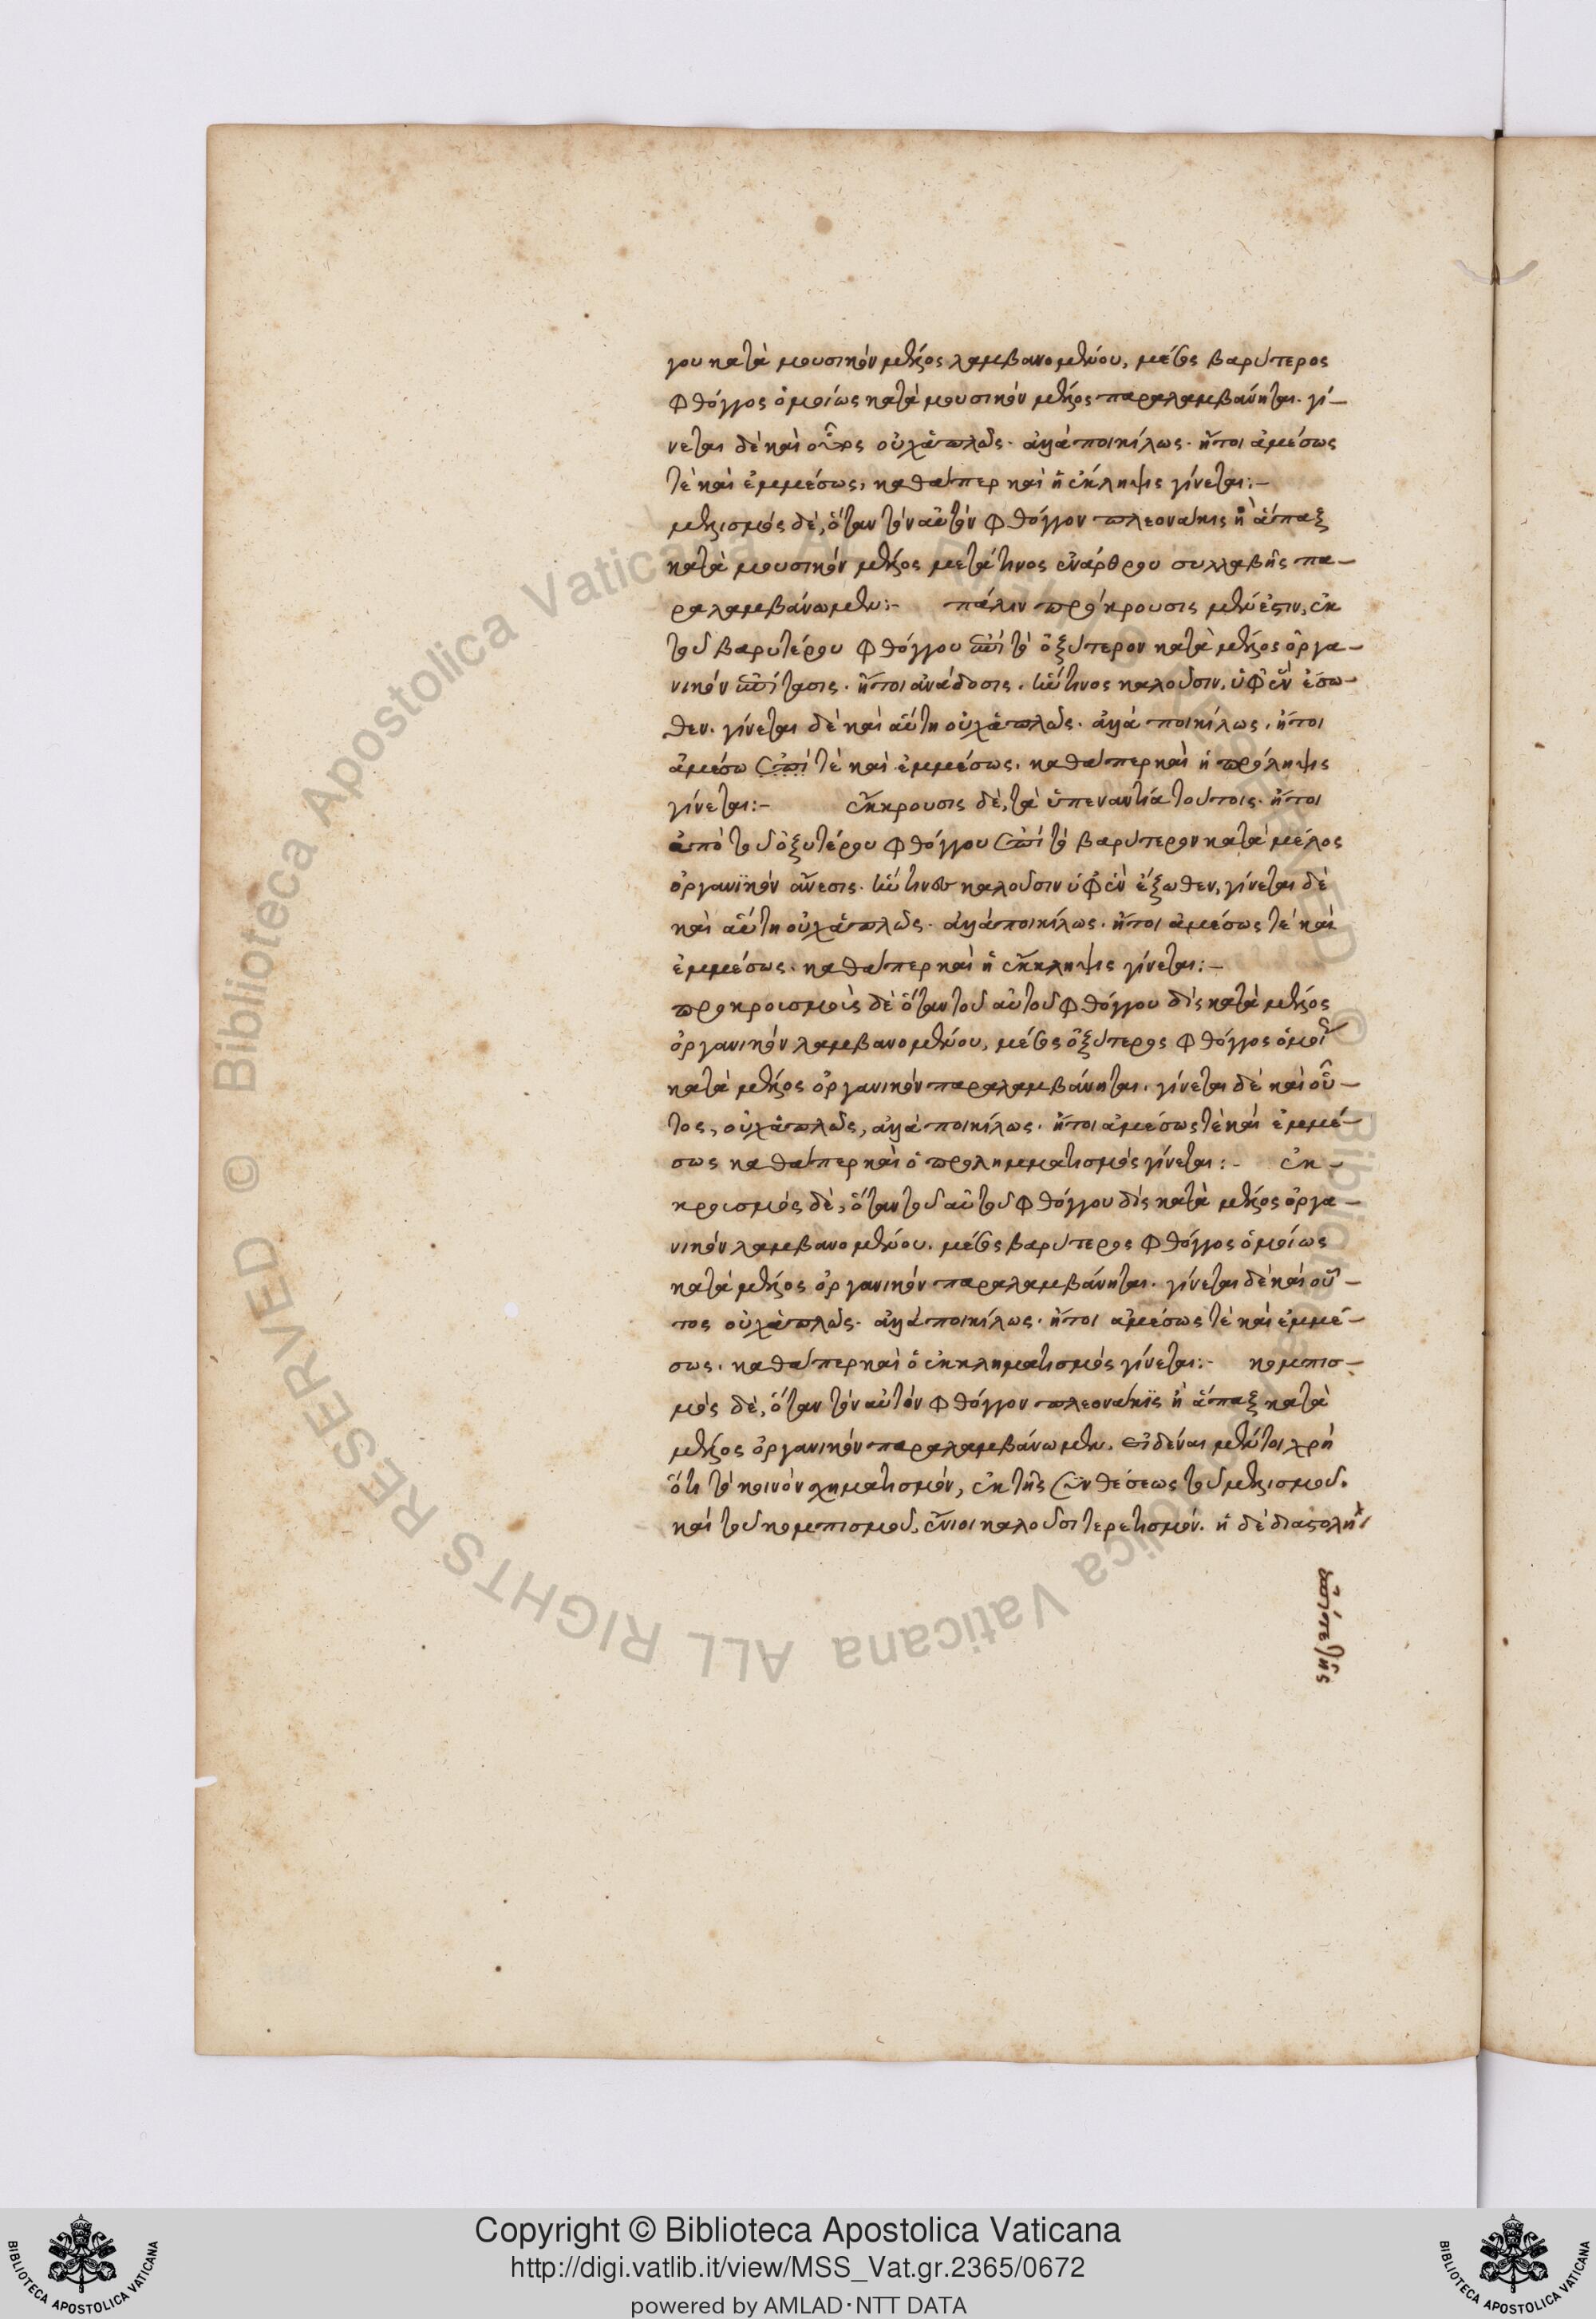 γου κατὰ μουσικὸν μέλος λαμβανομένου, μέσος βαρύτερος
φθόγγος ὁμοίως κατὰ μουσικὸν μέλος παραλαμβάνηται. γί-
νεται δὲ καὶ οὗτος οὐχ ἁπλῶς. ἀλλὰ ποικίλως. ἤτοι ἀμέσως
τὲ καὶ ἐμμέσως, καθάπερ καὶ ἡ ἔκληψις γίνεται:-
μελισμός δὲ, ὅταν τὸν αὐτὸν φθόγγον πλεονάκις ἢ ἅπαξ
κατὰ μουσικὸν μέλος μετά τινος ἐνάρθρου συλλαβῆς πα-
ραλαμβάνωμεν:- πάλιν πρόκρουσις μέν ἐστιν, ἐκ
τοῦ βαρυτέρου φθόγγου ἐπὶ τὸ ὀξύτερον κατὰ μέλος ὀργα-
νικὸν ἐπίτασις. ἤτοι ἀνάδοσις. ἥν τινος καλοῦσιν. ὑφ' ἓν ἔσω-
θεν. γίνεται δὲ καὶ αὕτη οὐχ ἁπλῶς. ἀλλὰ ποικίλως. ἤτοι
ἀμέσω ἐπί τὲ καὶ ἐμμέσως. καθάπερ καὶ ἡ πρόληψις
γίνεται:- ἔκκρουσις δὲ, τὰ ὑπεναντία τούτοις. ἤτοι
ἀπὸ τοῦ ὀξυτέρου φθόγγου ἐπὶ τὸ βαρύτερον κατὰ μέλος
ὀργανϊκὸν ἄνεσις. ἥν τινες καλοῦσιν ὑφ' ἓν ἔξωθεν, γίνεται δὲ
καὶ αὕτη οὐχ ἁπλῶς. ἀλλὰ ποικίλως. ἤτοι ἀμέσως τὲ καὶ
ἐμμέσως. καθάπερ καὶ ἡ ἔκκληψις γίνεται:-
προκροισμοὶς δὲ ὅταν τοῦ αὐτοῦ φθόγγου δὶς κατὰ μέλος
ὀργανικὸν λαμβανομένου, μέσος ὀξύτερος φθόγγος ὁμοί
κατὰ μέλος ὀργανικὸν παραλαμβάνηται. γίνεται δὲ καὶ οὗ-
τος, οὐχ ἁπλῶς, ἀλλὰ ποικίλως. ἤτοι ἀμέσως τὲ καὶ ἐμμέ-
σως καθάπερ καὶ ὁ προλημματισμός γίνεται:- ἐκ-
κροισμός δὲ, ὅταν τοῦ αὐτοῦ φθόγγου δὶς κατὰ μέλος ὀργα-
νικὸν λαμβανομένου. μέσος βαρύτερος φθόγγος ὁμοίως
κατὰ μέλος ὀργανικὸν παραλαμβάνηται. γίνεται δὲ καὶ οὗ-
τος οὐχ ἁπλῶς. ἀλλὰ ποικίλως. ἤτοι ἀμέσως τὲ καὶ ἐμμέ-
σως. καθάπερ καὶ ὁ ἐκκληματισμός γίνεται:- κομπισ-
μός δὲ, ὅταν τὸν αὐτὸν φθόγγον πλεονάκϊς ἢ ἅπαξ κατὰ
μέλος ὀργανικὸν παραλαμβάνωμεν. εἰδέναι μέντοι χρὴ
ὅτι τὸ κοινὸν χηματισμόν, ἐκ τῆς συνθέσεως τοῦ μελισμοῦ.
καὶ τοῦ κομπισμοῦ, ἔνιοι καλοῦσι τερετισμόν. ἡ δὲ διαστολὴ
ἐπί τε τῆς
Copyright © Biblioteca Apostolica Vaticana
http://digi.vatlib.it/view/MSS_Vat.gr.2365/0672
powered by AMLAD·NTT DATA
BIBLIOTECA APOSTOLICA VATICANA
BIBLIOTECA APOSTOLICA VATICANA
© Biblioteca Apostolica Vaticana ALL RIGHTS RESERVED
© Biblioteca Apostolica Vaticana ALL RIGHTS RESERVED